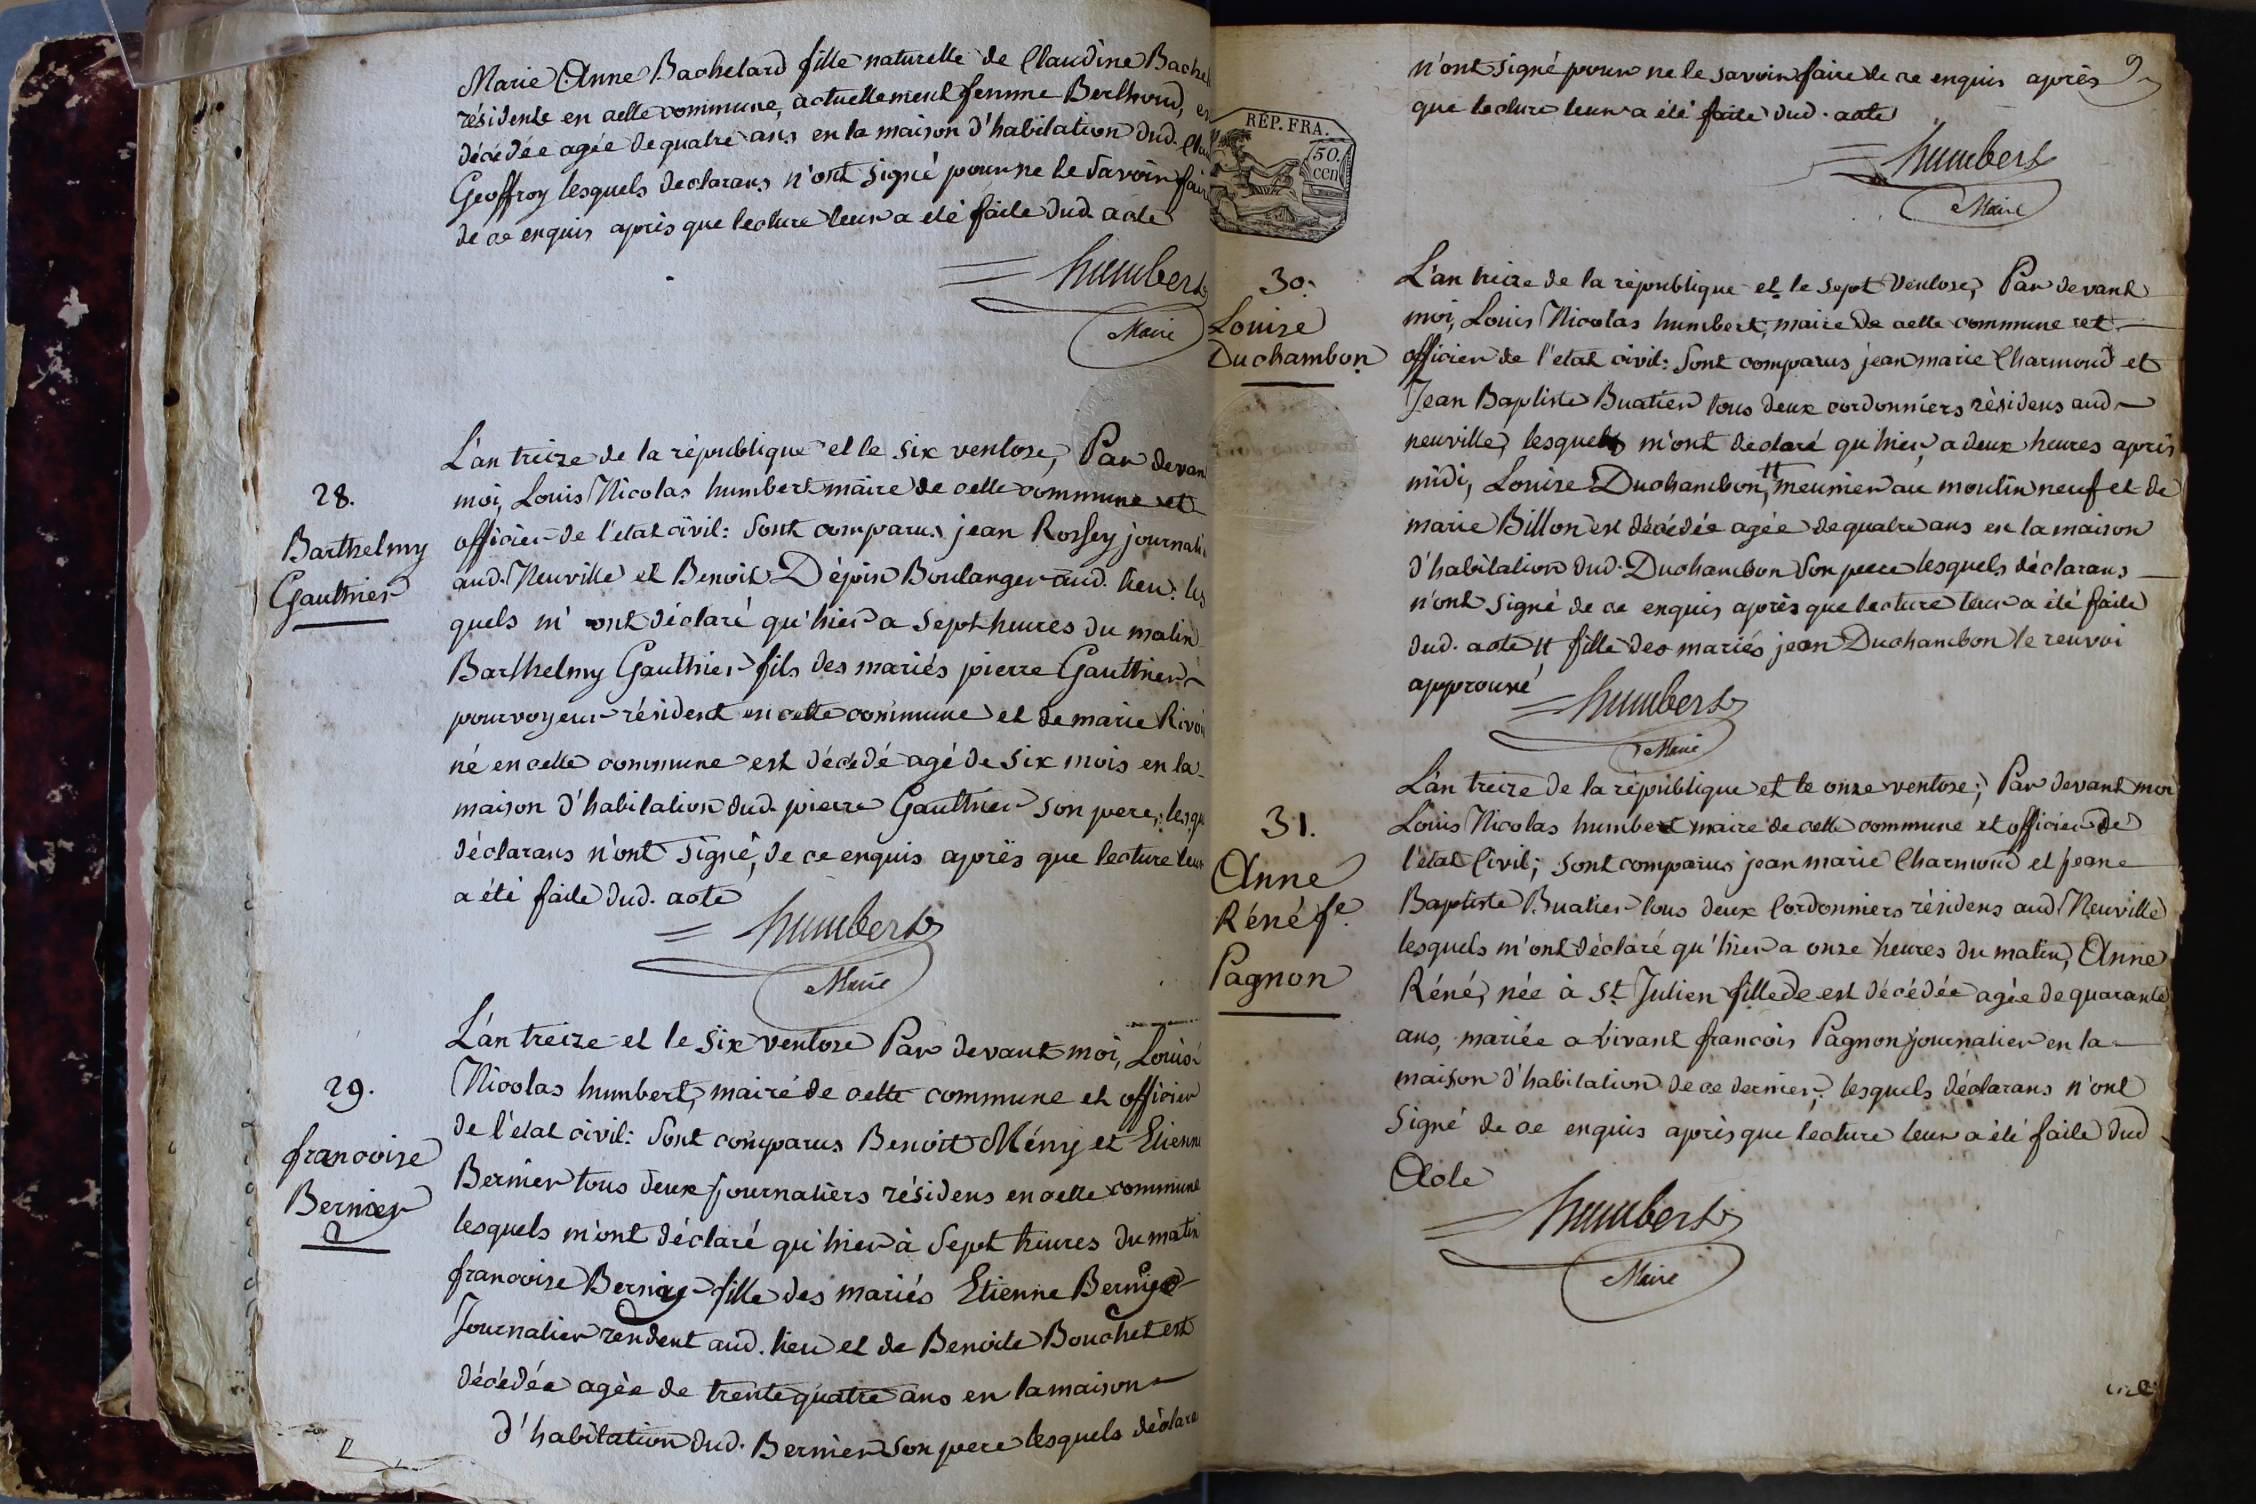 Marie Anne Bachelard fille naturelle de Claudine Bachel
résidente en cette commune, actuellement femme Berthoud, es
décédée agée de quatre ans en la maison d'habitation dud. Clau
Geoffroy lesquels declarans n'ont signé pour ne le savoir fair
de ce enquis après que lecture leur a été faite dud. acte
humbert
Maire
28.
Barthelmy
Gauthier
L'an treize de la république et le six ventose, Par devan
moi, Louis Nicolas humbert maire de cette commune et
officier de l'etat civil: Sont comparus jean Rossey journali
aud. Neuville et Benoit Dépin Boulanger aud. lieu: les
quels m'ont déclaré qu'hier a sept heures du matin
Barthelmy Gauthier fils des mariés pierre Gauthier
pourvoyeur résident en cette commune et de marie Rivoi
né en cette commune est décédé agé de six mois en la
maison d'habitation dud. pierre Gauthier son pere, lesqu
déclarans n'ont signé, de ce enquis après que lecture leur
a été faite dud. acte
humbert
Maire
29.
francoise
Bernier
L'an treize et le six ventose Par devant moi, Louis
Nicolas humbert, maire de cette commune et officier
de l'etat civil: Sont comparus Benoit Mémy et Etienne
Bernier tous deux journaliers résidens en cette commune
lesquels m'ont déclaré qu'hier à sept heures du matin
francoise Bernier fille des mariés Etienne Bernier
Journalier rendent aud. lieu et de Benoite Bouchet est
décédée agée de trente quatre ans en la maison
d'habitation dud. Bernier son pere lesquels déclara
9
n'ont signé pour ne le savoir faire de ce enquis après
que lecture leur a été faite dud. acte
humbert
Maire
REP. FRA.
50.
cen
30.
Louise
Duchambon
L'an treize de la république et le sept ventose, Par devant
moi, Louis Nicolas humbert, maire de cette commune et
officier de l'etat civil: Sont comparus jean marie Charmoud et
Jean Baptiste Buatier tous deux cordonniers résidens aud
neuville, lesquels m'ont declaré qu'hier, a deux heures après
midi, Louise Duchambon, # meunier au moulin neuf et de
marie Billon est décédée agée de quatre ans en la maison
d'habitation dud. Duchambon son pere lesquels déclarans
n'ont signé de ce enquis après que lecture leur a été faite
dud. acte # fille des mariés jean Duchambon le renvoi
approuvé
humbert
Maire
31.
Anne
Réné fe.
Pagnon
L'an treize de la république et le onze ventose; Par devant moi
Louis Nicolas humbert maire de cette commune et officier de
l'état Civil; sont comparus jean marie Charmoud et jean
Baptiste Buatier tous deux Cordonniers résidens aud Neuville
lesquels m'ont déclaré qu'hier a onze heures du matin, Anne
Réné, née à St. Julien fille de est décédée agée de quarante
ans, mariée a vivant francois Pagnon journalier en la
maison d'habitation de ce dernier, lesquels déclarans n'ont
signé de ce enquis après que lecture leur a été faite dud
Acte
humbert
Maire